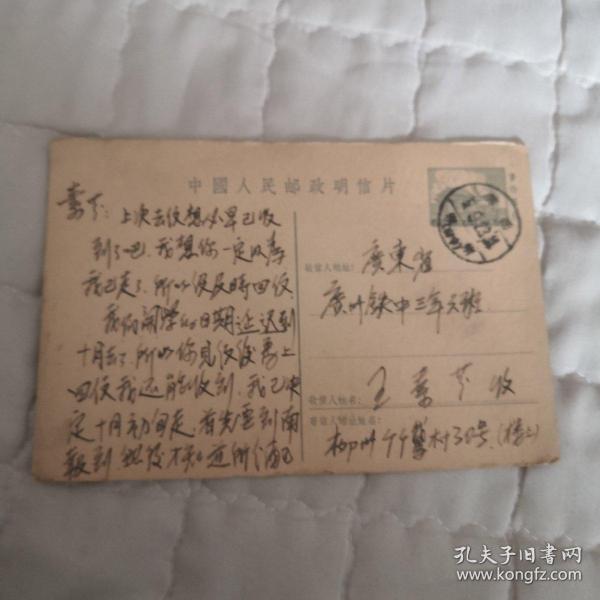 中國人民邮政明信片
素芬：上次去信想必早已收
到了吧，我想你一定以为
我已走了，所以没及時回信，
我们開学的日期延迟到
十月去了，所以你見信後马上
回信我还能收到，我已决
定十月初旬走，首先要到南
報到 然後才
收信人地址：
廣東省
廣州铁中三年六班
收信人姓名：
王素芬收
寄信人地址姓名：
柳州 村30号（楼上）
孔夫子旧书网
www.kongfz.com